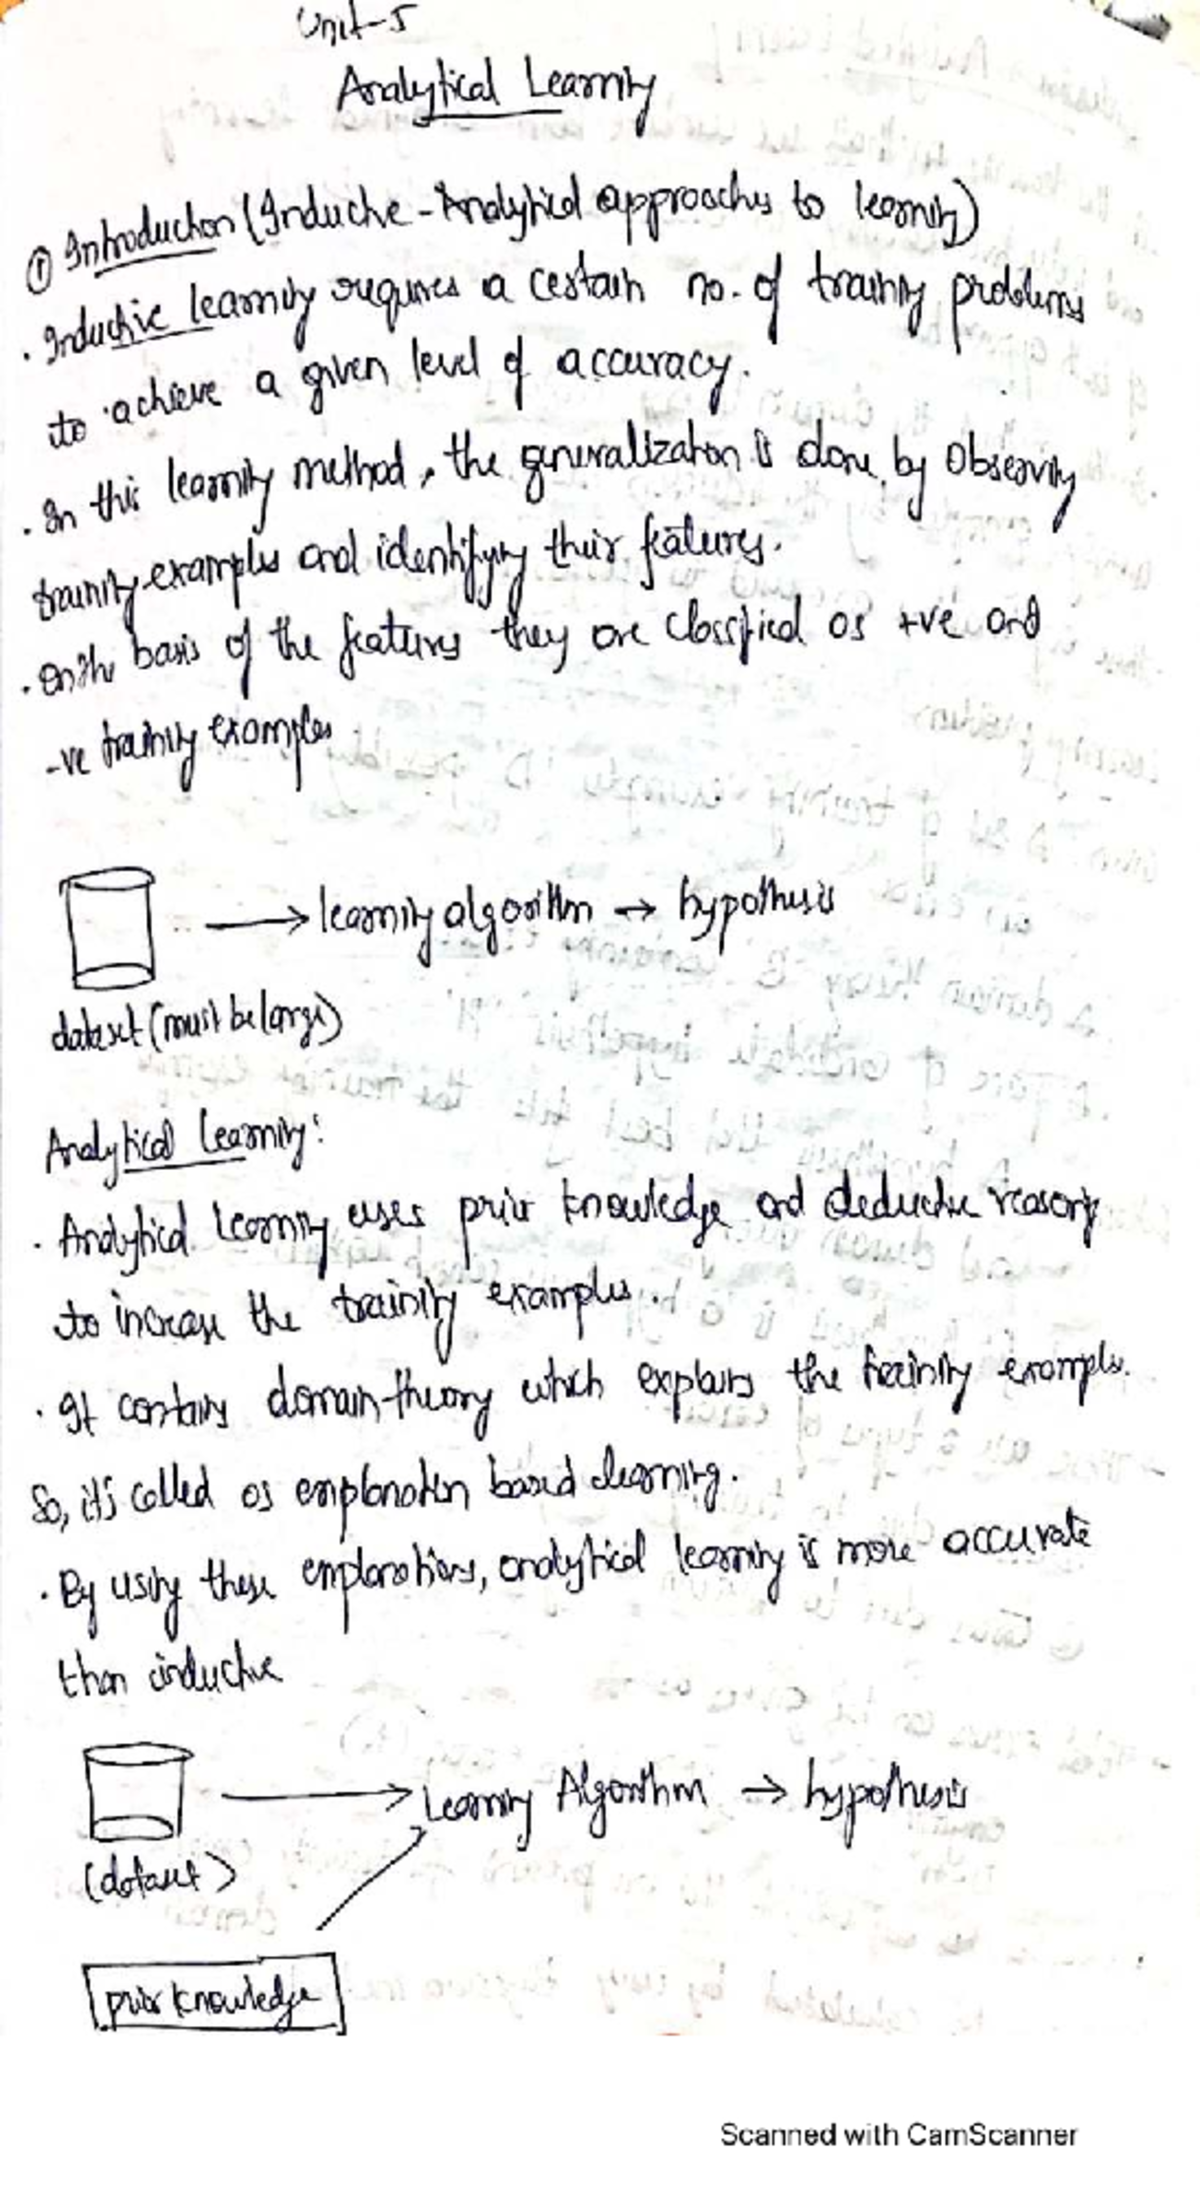 Unit-5
Analytical Learning
① Introduction (Inductive-Analytical approaches to learning)
. Inductive learning requires a certain no. of training problems
to achieve a given level of accuracy.
. In this learning method, the generalization is done by observing
training examples and identifying their features.
. on the basis of the features they are classified as +ve and
-ve training examples
→ learning algorithm → hypothesis
dataset (must be large)
Analytical Learning:
. Analytical learning uses prior knowledge and deductive reasoning
to increase the training examples.
. It contains domain-theory which explains the training examples.
So, it's called as explanation based learning.
. By using these explanations, analytical learning is more accurate
than inductive
→ Learning Algorithm → hypothesis
(dataset)
prior knowledge
Scanned with CamScanner